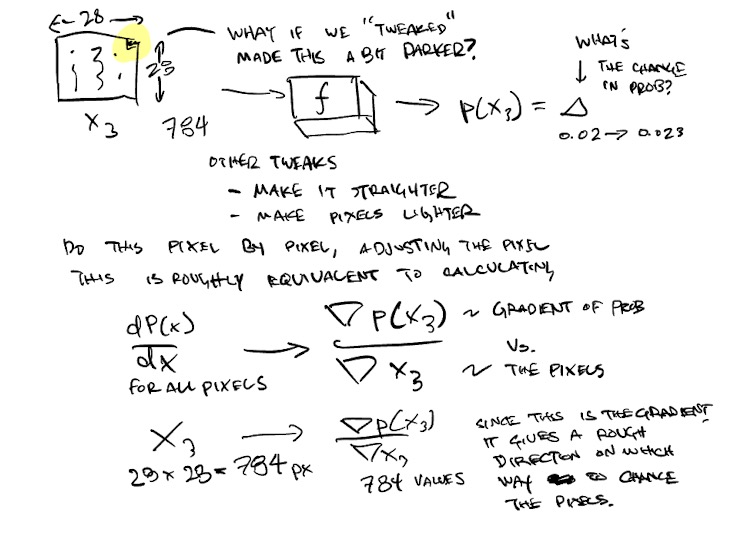 ← 28 →
WHAT IF WE "TWEAKED"
MADE THIS A BIT DARKER?
28
X₃
784
f
p(X₃) = △
WHAT'S
THE CHANGE
IN PROB?
0.02 → 0.023
OTHER TWEAKS
- MAKE IT STRAIGHTER
- MAKE PIXELS LIGHTER
DO THIS PIXEL BY PIXEL, ADJUSTING THE PIXEL
THIS IS ROUGHLY EQUIVALENT TO CALCULATING
dP(x)
dx
FOR ALL PIXELS
→
▽ p(X₃) ~ GRADIENT OF PROB
VS.
▽ X₃ ~ THE PIXELS
X₃ →
28 x 28 = 784 px
▽p(X₃)
▽X₃
784 VALUES
SINCE THIS IS THE GRADIENT,
IT GIVES A ROUGH
DIRECTION ON WHICH
WAY TO CHANGE
THE PIXELS.